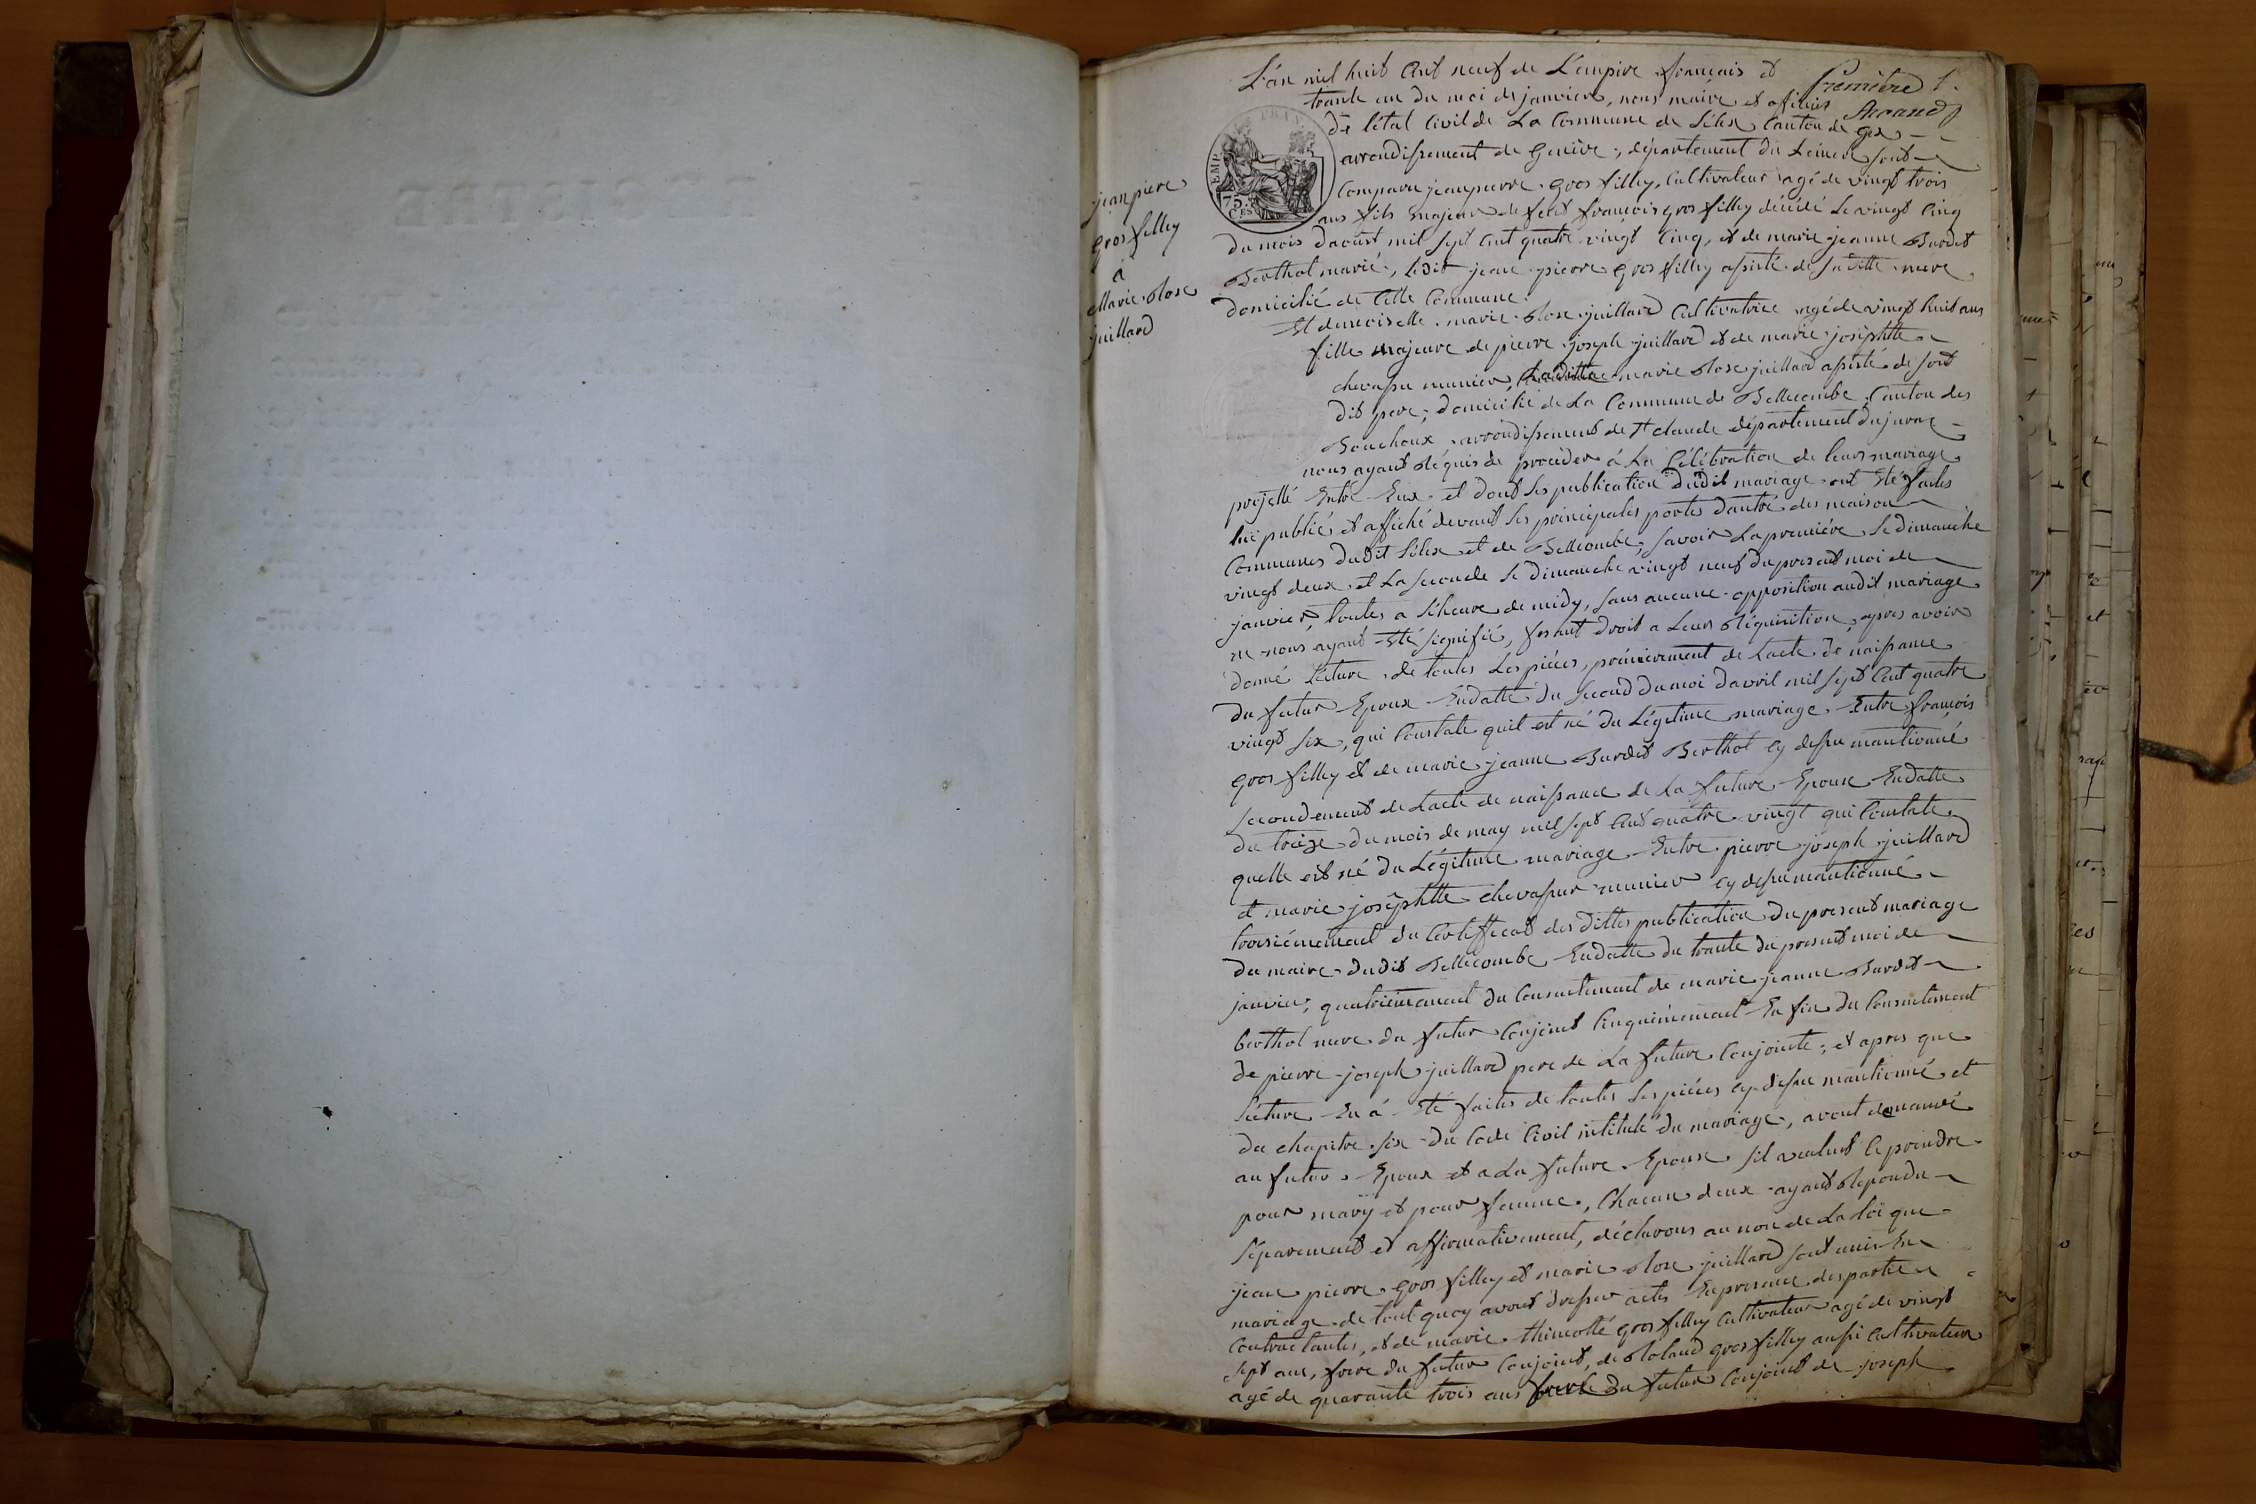 L'an mil huit Cent neuf de L'empire français et
trante un du moi de janvier, nous maire et officier
de létat Civil de La Commune de Lélex Canton de gex
arrondissement de Genève, département du Leman sont
Comparu jean pierre gros filley, Cultivateur agé de vingt trois
ans fils majeur de feut françois gros filley décédé Le vingt Cinq
du mois daoust mil sept Cent quatre vingt Cinq, et de marie jeanne Burdet
Berthol marié, Ledit jean pierre gros filley assisté de sa ditte mere
domicilié de Cette Commune.
Et demoiselle marie Rose juillard Cultivatrice agé de vingt huit ans
fille majeure de pierre joseph juillard et de marie josephtte
chevassu munier, Laditte marie Rose juillard assisté de sont
dit pere, domicilié de La Commune de Bellecombe Canton des
Bouchoux arrondissement de St claude département du jura
nous ayant Réquis de proceder á La Célébration de leurs mariage
projetté Entre Eux et dont Les publication dudit mariage ont Eté faites
Lui publié et affiché devant Les principales portes dantré des maison
Communes dudit Lélex et de Bellecombe, savoir La premiére Le dimanche
vingt deux et La seconde Le dimanche vingt neuf du present moi de
janvier, toutes a L'heure de midy, sans aucune opposition audit mariage
ne nous ayant Eté signifié, fesant droit a Leur Réquisition, apres avoir
donné Lecture de toutes Les piéces, premierement de Lacte de naissance
du futur Epoux Endatte du second du moi davril mil sept Cent quatre
vingt six, qui Constate quil est né du Légitime mariage Entre françois
gros filley et de marie jeanne Burdet Berthol cy dessu mantionné
secondement de Lacte de naissance de La future Epouse Endatte
du treize du mois de may mil sept Cent quatre vingt qui Constate
quelle est né du Légitime mariage Entre pierre joseph juillard
et marie josephtte chevassu munier cy dessu mantionné
troisiémement du Certifficat des dittes publication du present mariage
du maire dudit Bellecombe Endatte du trante du present moi de
janvier, quatriémement du Consentement de marie jeanne Burdet
berthol mere du futur Conjoint Cinquiémement En fin du Consentement
de pierre joseph juillard pere de La future Conjointe, et apres que
Lécture En á Eté faites de toutes Les piéces cy dessu mantionné et
du chapitre six du Code Civil intitulé du mariage, avont demandé
au futur Epoux et a La future Epouse sil veulent ce prendre
pour mary et pour femme, Chacun deux ayant Repondu
séparement et affirmativement, déclarons au non de La loi que
jean pierre gros filley et marie Rose juillard sont unis En
mariage de tout quoy avont dresser actes Enpresence des partie
Contractantes, et de marie thimotté gros filley Cultivateur agé de vingt
sept ans, frere du futur Conjoint, de Roland gros filley aussi Cultivateur
agé de quarante trois ans du futur Conjoint de joseph
premiere 1.
jean piere
gros filley
a
Marie Rose
juillard
EMP.
75.
C.ES